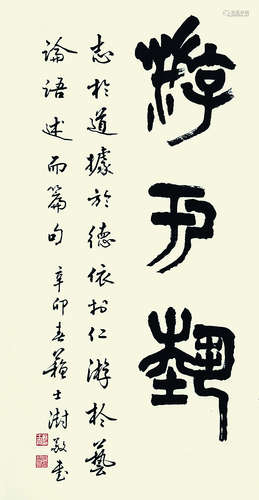 游于藝
志於道據於德依於仁游於藝
論語述而篇句 辛卯春蘇士澍敬書